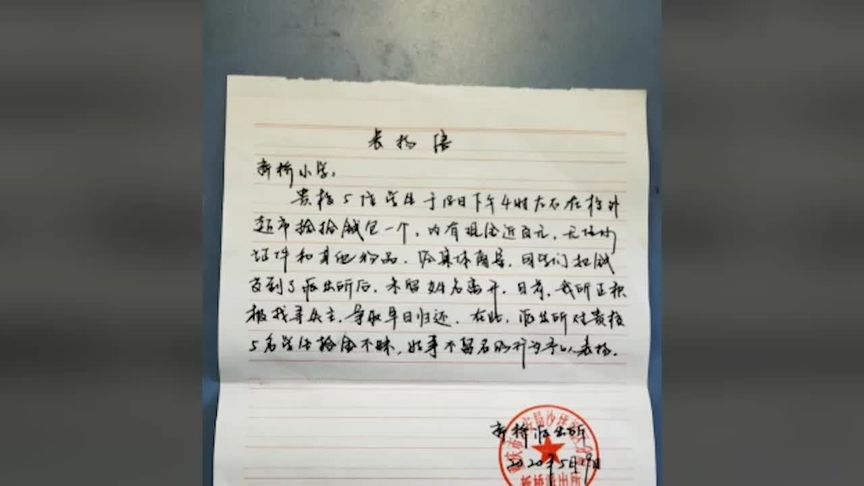 表扬信
新桥小学:
贵校5位学生于18日下午4时左右在校外
超市捡拾钱包一个,内有现金近百元,无任何
证件和其他物品。经集体商量,同学们把钱
交到了派出所后,未留姓名离开。目前,我所正积
极找寻失主,争取早日归还。在此,派出所对贵校
5名学生拾金不昧,好事不留名的行为予以表扬。
新桥派出所
2020年5月19日